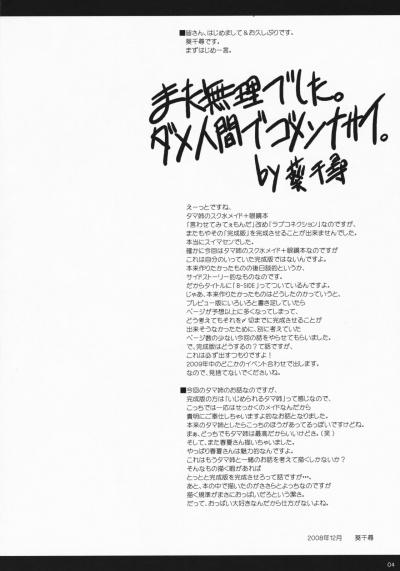 ■皆さん、はじめまして＆お久しぶりです。
葵千尋です。
まずはじめ一言。
また無理でした。
ダメ人間でゴメンナサイ。
by 葵千尋
えーっとですね、
タマ姉のスク水メイド＋眼鏡本
「言わせてみてぇもんだ」改め「ラブコネクション」なのですが、
またもやその「完成版」を完成させることが出来ませんでした。
本当にスイマセンでした。
確かに今回はタマ姉のスク水メイド＋眼鏡本なのですが
これは自分のいっていた完成版ではないんですよ。
本来作りたかったものの後日談的というか、
サイドストーリー的なものなのです。
だからタイトルに「B-SIDE」ってついているんですよ。
じゃあ、本来作りたかったものはどうしたのかっていうと、
プレビュー版にいろいろと書き足していたら
ページが予想以上に多くなってしまって、
どう考えてもそれを〆切までに完成させることが
出来そうなかったために、別に考えていた
ページ数の少ない今回の話をやらせてもらいました。
で、完成版はどうするの？て話ですが、
これは必ず出すつもりですよ！
2009年中のどこかのイベント合わせで出します。
なので、見捨てないでくださいね。
■今回のタマ姉のお話なのですが、
完成版の方は「いじめられるタマ姉」って感じなので、
こっちでは一応はせっかくのメイドなんだから
貴明にご奉仕しちゃいますよ的なお話となりました。
本来のタマ姉としたらこっちのほうがあってるっぽいですけどね。
まぁ、どっちでもタマ姉は最高だからいいけどさ。（笑）
そして、また春夏さん描いちゃいました。
やっぱり春夏さんは魅力的なんですよ。
これはもうタマ姉と一緒のお話を考えて描くしかないか？
そんなもの描く暇があれば
とっとと完成版を完成させろって話ですが・・・。
あと、本の中で描いたのがささらとよっちなのですが
描く規準がまさにおっぱいだろという潔さ。
だって、おっぱい大好きなんだから仕方がないよね。
2008年12月　葵千尋
04